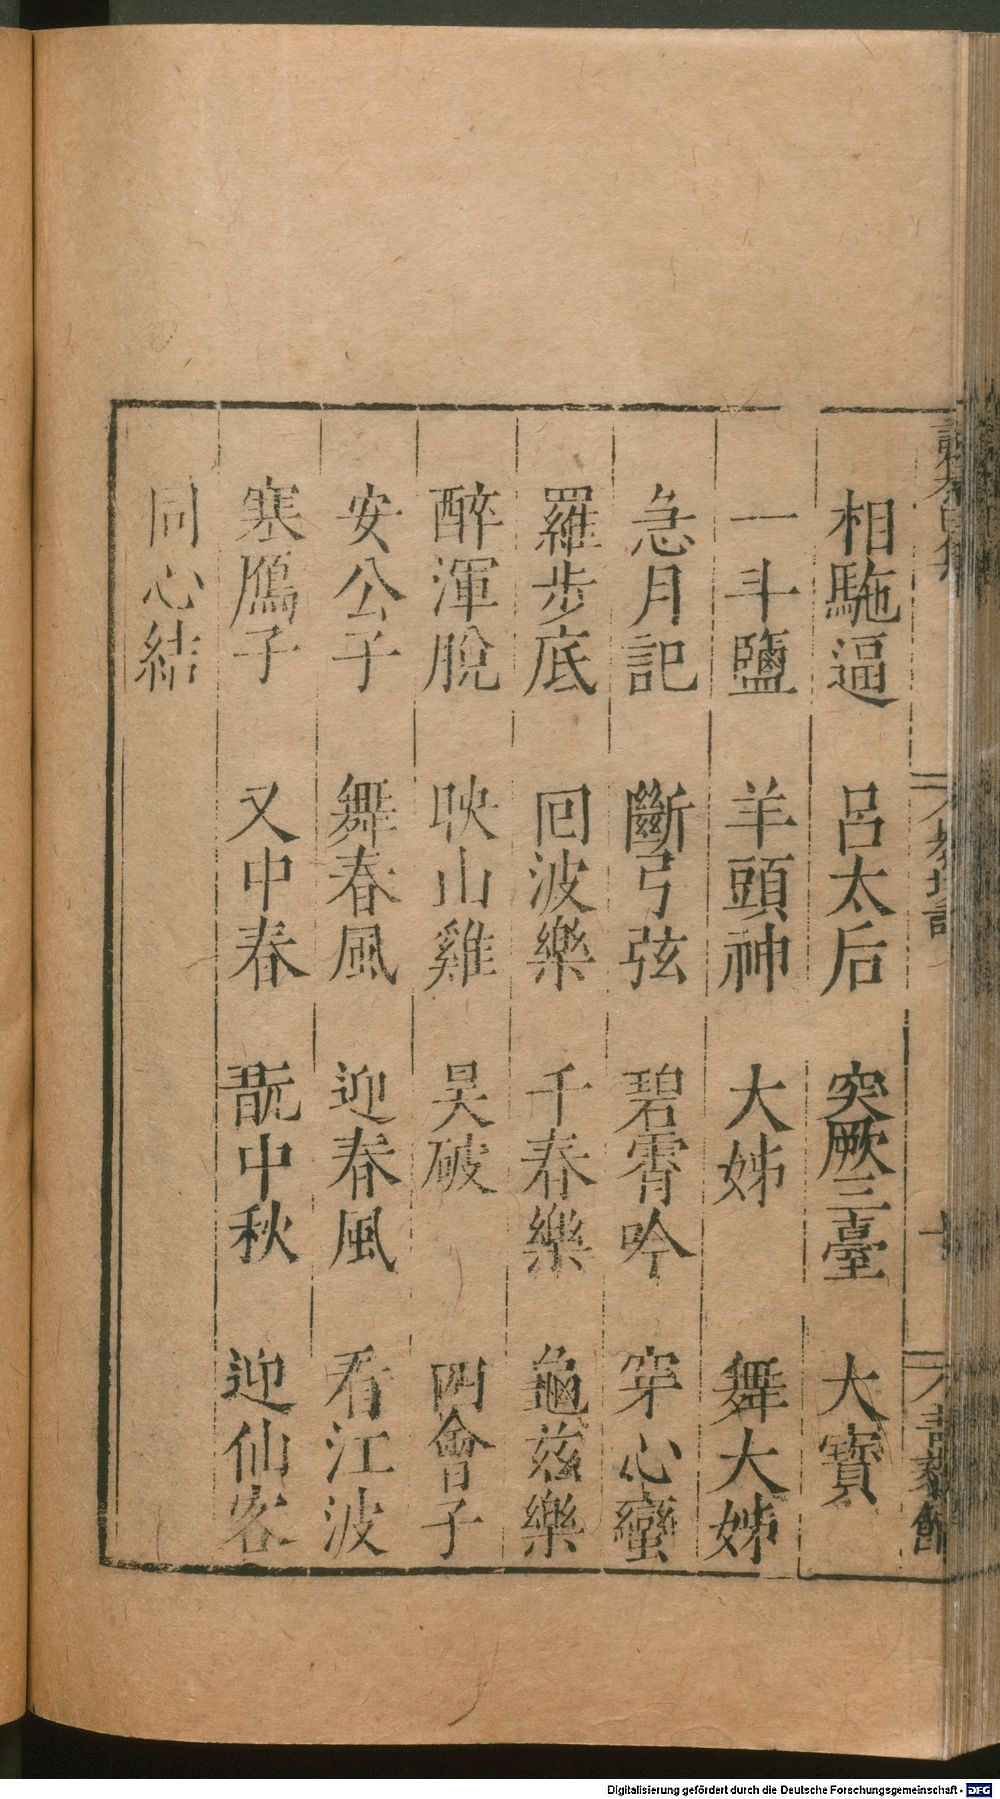 教坊記
相駞逼　呂太后　突厥三臺　大寶
一斗鹽　羊頭神　大姊　舞大姊
急月記　斷弓弦　碧霄吟　穿心蠻
羅步底　回波樂　千春樂　龜茲樂
醉渾脫　映山雞　吴破　四會子
安公子　舞春風　迎春風　看江波
寒鴈子　又中春　翫中秋　迎仙客
同心結
Digitalisierung gefördert durch die Deutsche Forschungsgemeinschaft - DFG